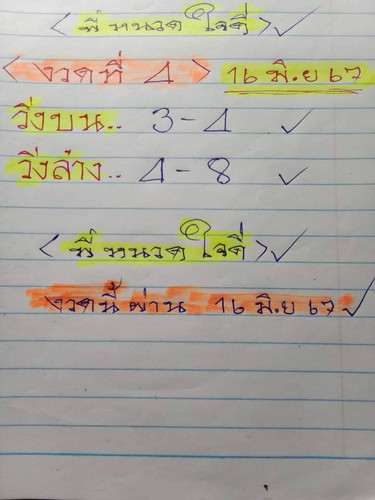 < พี่ หนวด ใจดี > ✓
< งวดที่ 4 > 16 มิ.ย 67
วิ่งบน.. 3-4 ✓
วิ่งล่าง.. 4-8 ✓
< พี่ หนวด ใจดี > ✓
งวดนี้ ผ่าน 16 มิ.ย 67 ✓